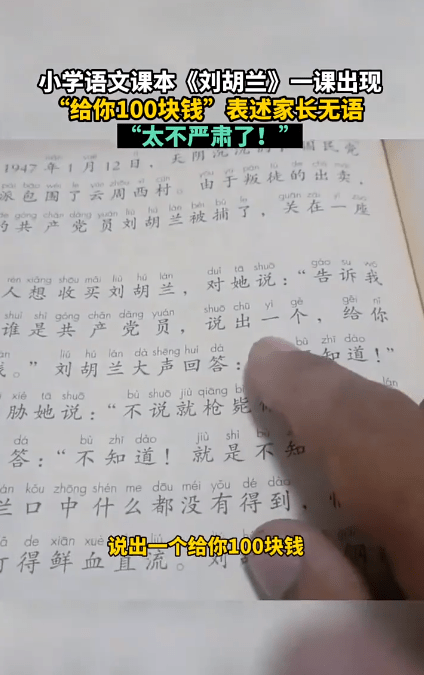 小学语文课本《刘胡兰》一课出现
“给你100块钱”表述家长无语
“太不严肃了！”
1947年1月12日，天阴沉沉的，国民党
派包围了云周西村。由于叛徒的出卖，
的共产党员刘胡兰被捕了，关在一座
rén xiǎng shōu mǎi liú hú lán duì tā shuō gào su wǒ
人想收买刘胡兰，对她说：“告诉我
shuí shì gòng chǎn dǎng yuán shuō chū yí gè gěi nǐ
谁是共产党员，说出一个，给你
liú hú lán dà shēng huí dá bù zhī dào
。”刘胡兰大声回答：不知道！”
xié tā shuō bù shuō jiù qiāng bì
胁她说：“不说就枪毙
dá bù zhī dào jiù shì bù
答：“不知道！就是不知
kǒu zhōng shén me dōu méi yǒu dé dào
兰口中什么都没有得到，
de xiān xuè
打得鲜血直流。刘
说出一个给你100块钱